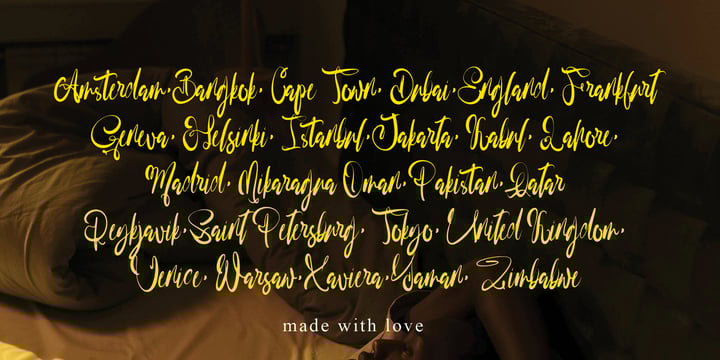 Amsterdam, Bangkok, Cape Town, Dubai, England, Frankfurt
Geneva, Helsinki, Istanbul, Jakarta, Kabul, Lahore,
Madrid, Nikaragua Oman, Pakistan, Qatar
Reykjavik, Saint Petersburg, Tokyo, United Kingdom,
Venice, Warsaw, Xaviera, Yaman, Zimbabwe
made with love